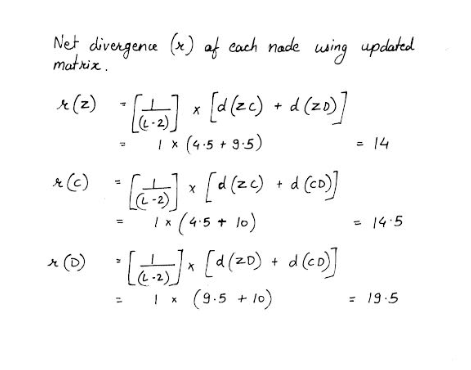 Net divergence (r) of each node using updated
matrix.
r(z) = [1/(L-2)] x [d(zc) + d(zD)]
= 1 x (4.5 + 9.5) = 14
r(c) = [1/(L-2)] x [d(zc) + d(cD)]
= 1 x (4.5 + 10) = 14.5
r(D) = [1/(L-2)] x [d(zD) + d(cD)]
= 1 x (9.5 + 10) = 19.5